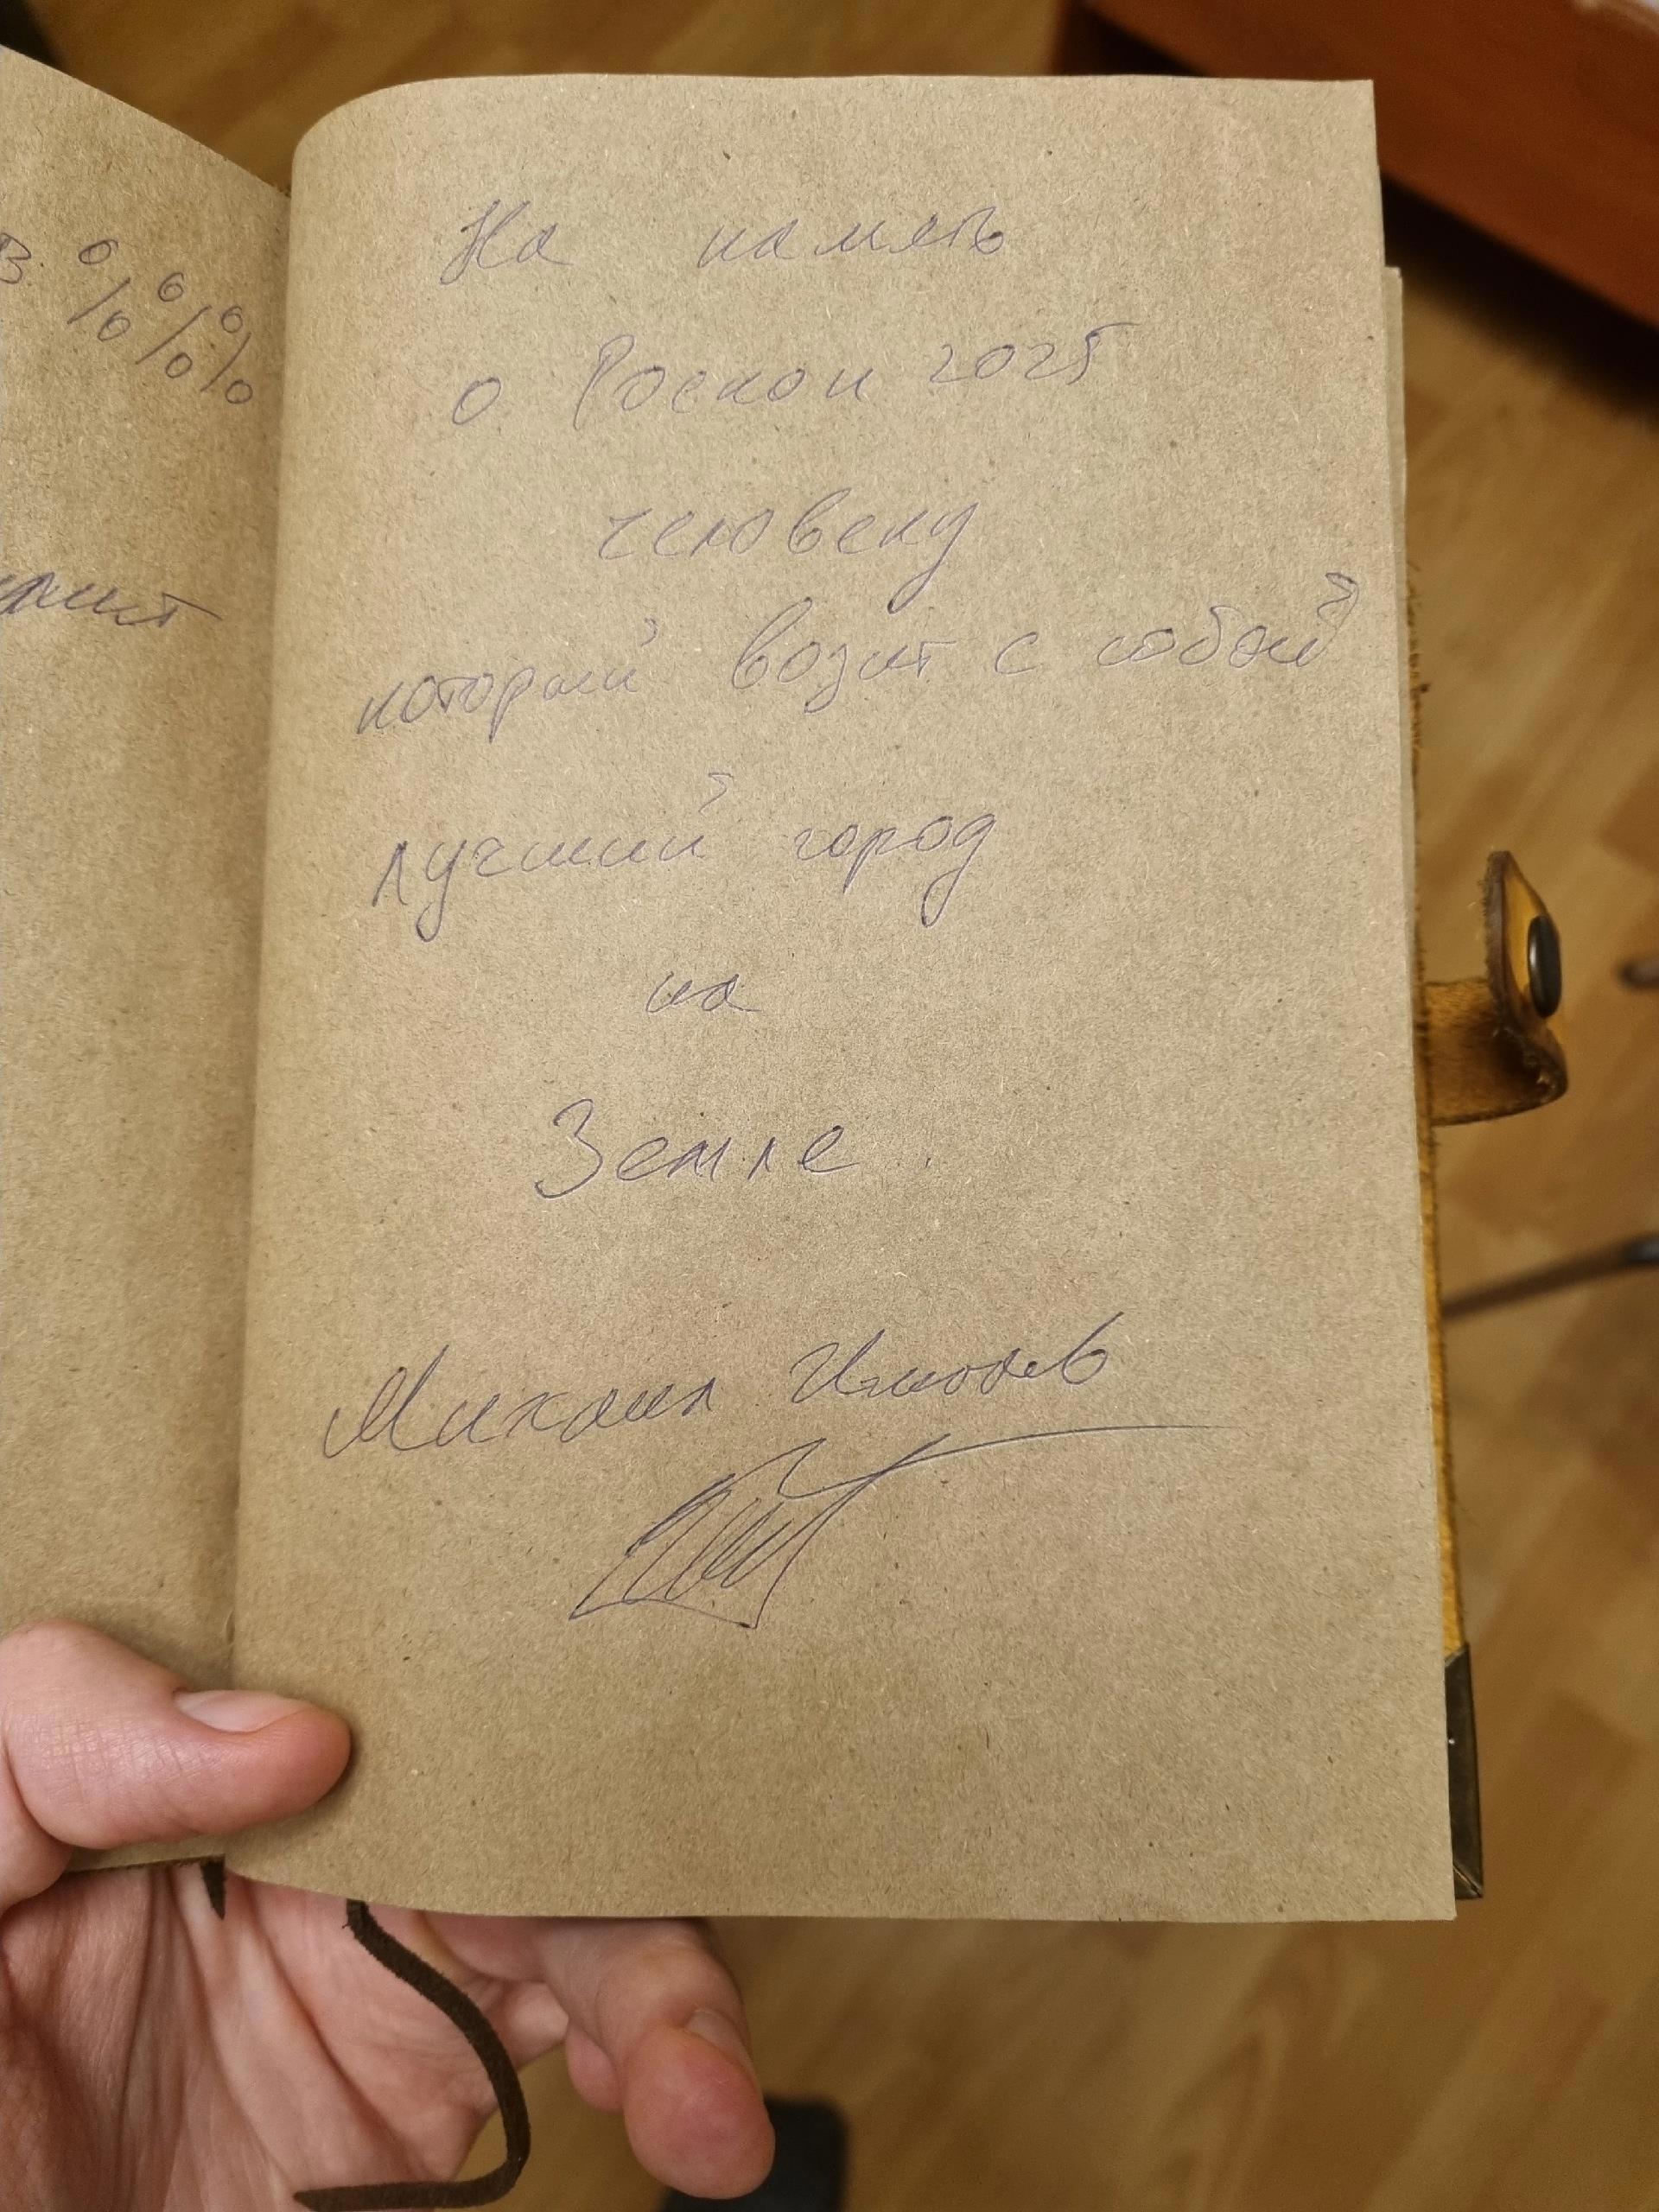 В %%%
На память
о Роскон 2025
человеку
который возит с собой
лучший город
на
Земле.
Михаил